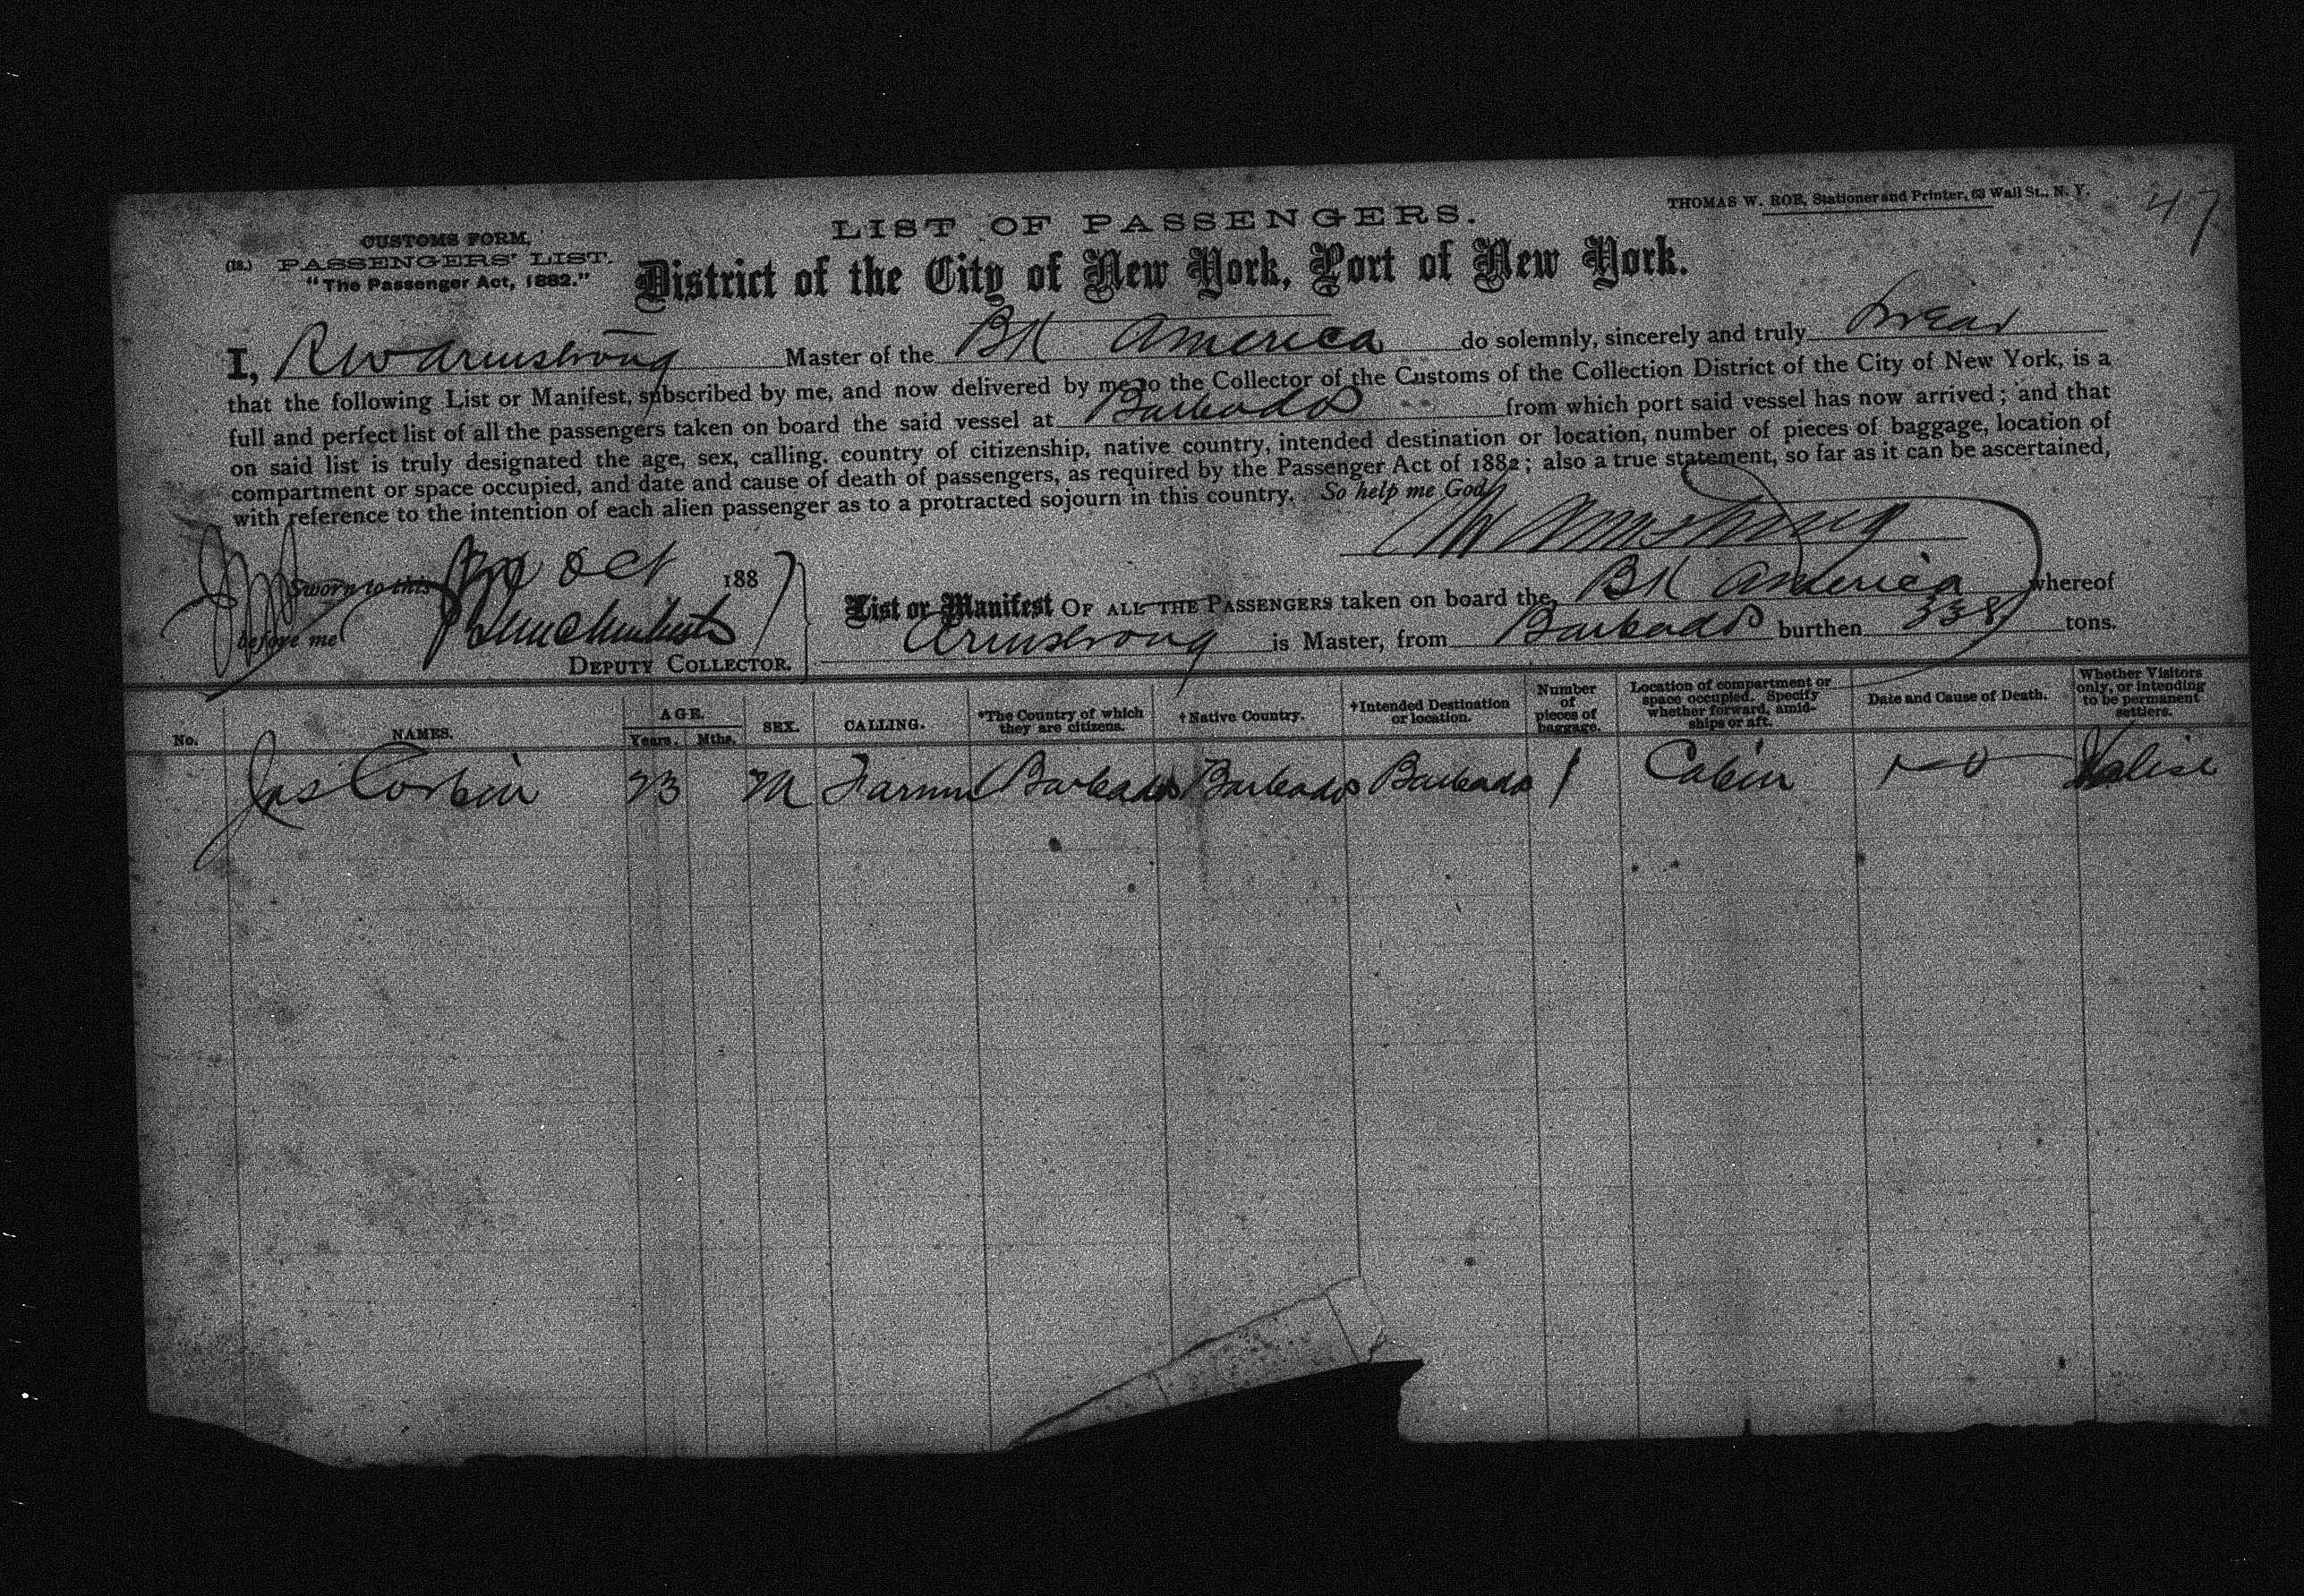 THOMAS W. ROE, Stationer and Printer, 63 Wall St., N. Y.
47
LIST OF PASSENGERS.
CUSTOMS FORM,
(18.) PASSENGERS' LIST.
"The Passenger Act, 1882."
District of the City of New York, Port of New York.
I, RW Armstrong Master of the BK America do solemnly, sincerely and truly Swear
that the following List or Manifest, subscribed by me, and now delivered by me to the Collector of the Customs of the Collection District of the City of New York, is a
full and perfect list of all the passengers taken on board the said vessel at Barbados from which port said vessel has now arrived; and that
on said list is truly designated the age, sex, calling, country of citizenship, native country, intended destination or location, number of pieces of baggage, location of
compartment or space occupied, and date and cause of death of passengers, as required by the Passenger Act of 1882; also a true statement, so far as it can be ascertained,
with reference to the intention of each alien passenger as to a protracted sojourn in this country. So help me God
RW Armstrong
Sworn to this Oct 1887
before me
DEPUTY COLLECTOR.
List or Manifest OF ALL THE PASSENGERS taken on board the BK America whereof
Armstrong is Master, from Barbados burthen 338 tons.
No. NAMES. AGE. Years. Mths. SEX. CALLING. *The Country of which they are citizens. †Native Country. †Intended Destination or location. Number of pieces of baggage. Location of compartment or space occupied. Specify whether forward, amidships or aft. Date and Cause of Death. Whether Visitors only, or intending to be permanent settlers.
Jas Corbin 23 M Farmer Barbados Barbados Barbados 1 Cabin Valise